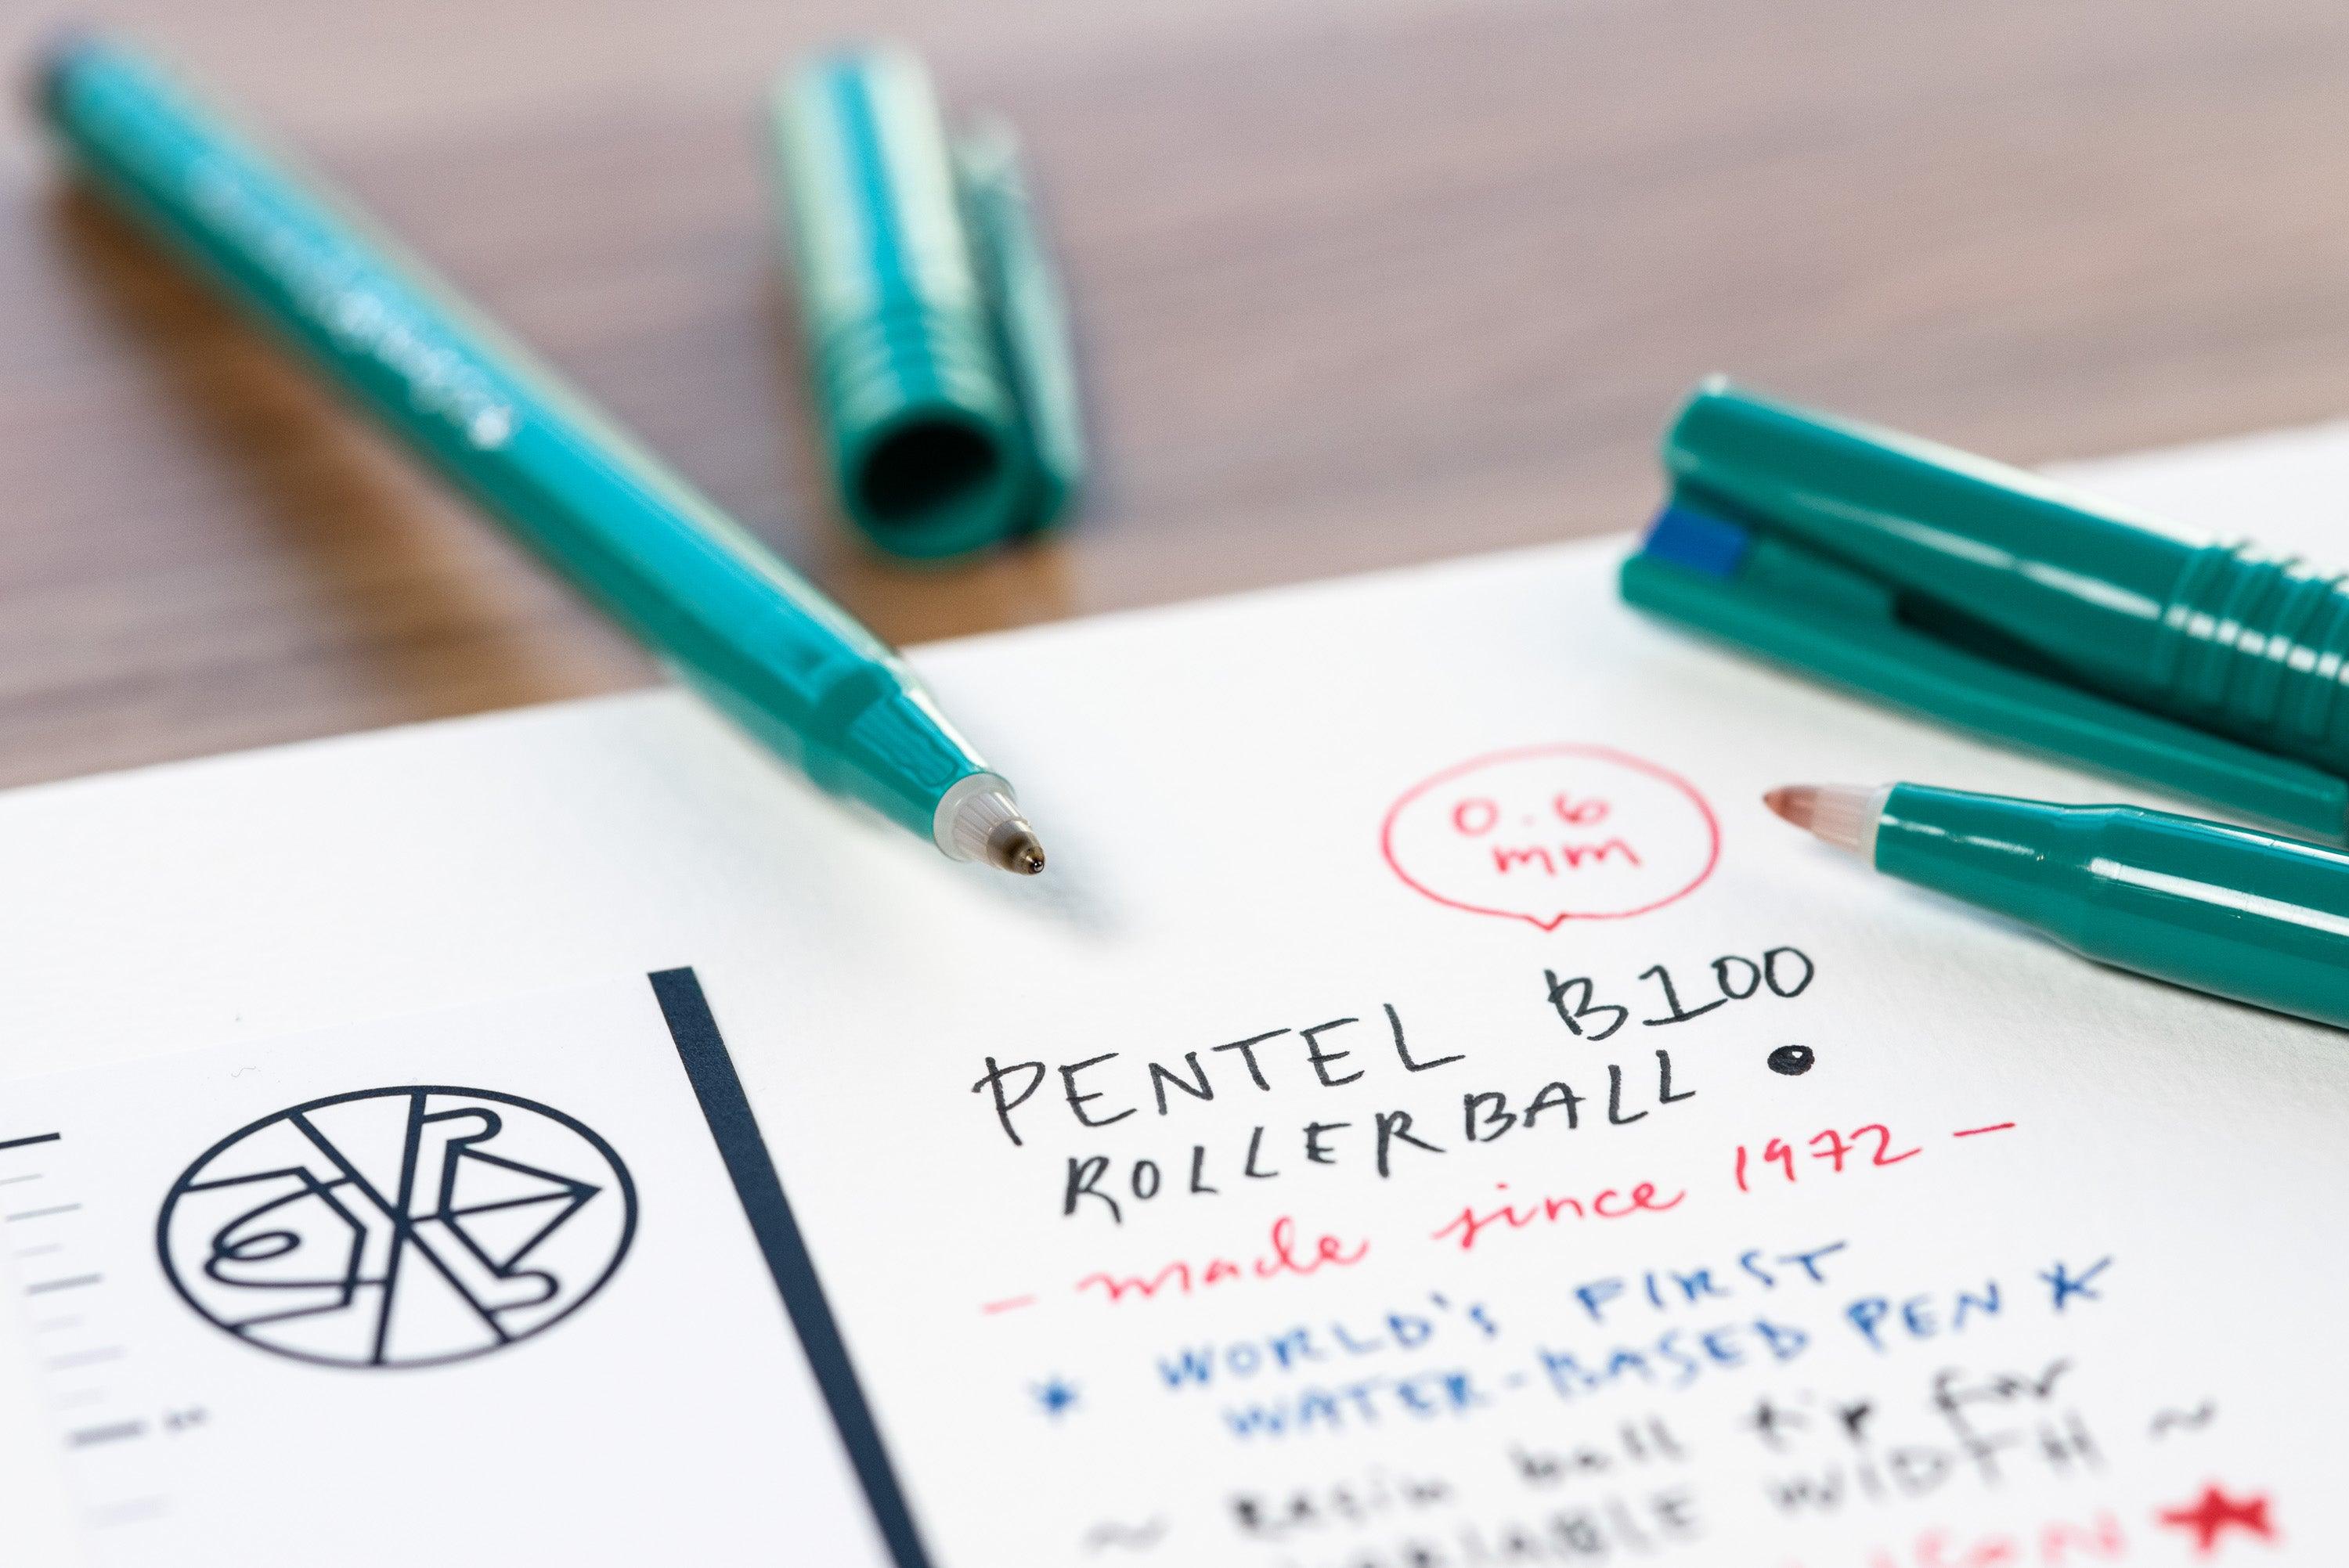 0.6
mm
PENTEL B100
ROLLERBALL
- made since 1972 -
WORLD'S FIRST
WATER-BASED PEN
~ Resin ball tip for
VARIABLE WIDTH ~